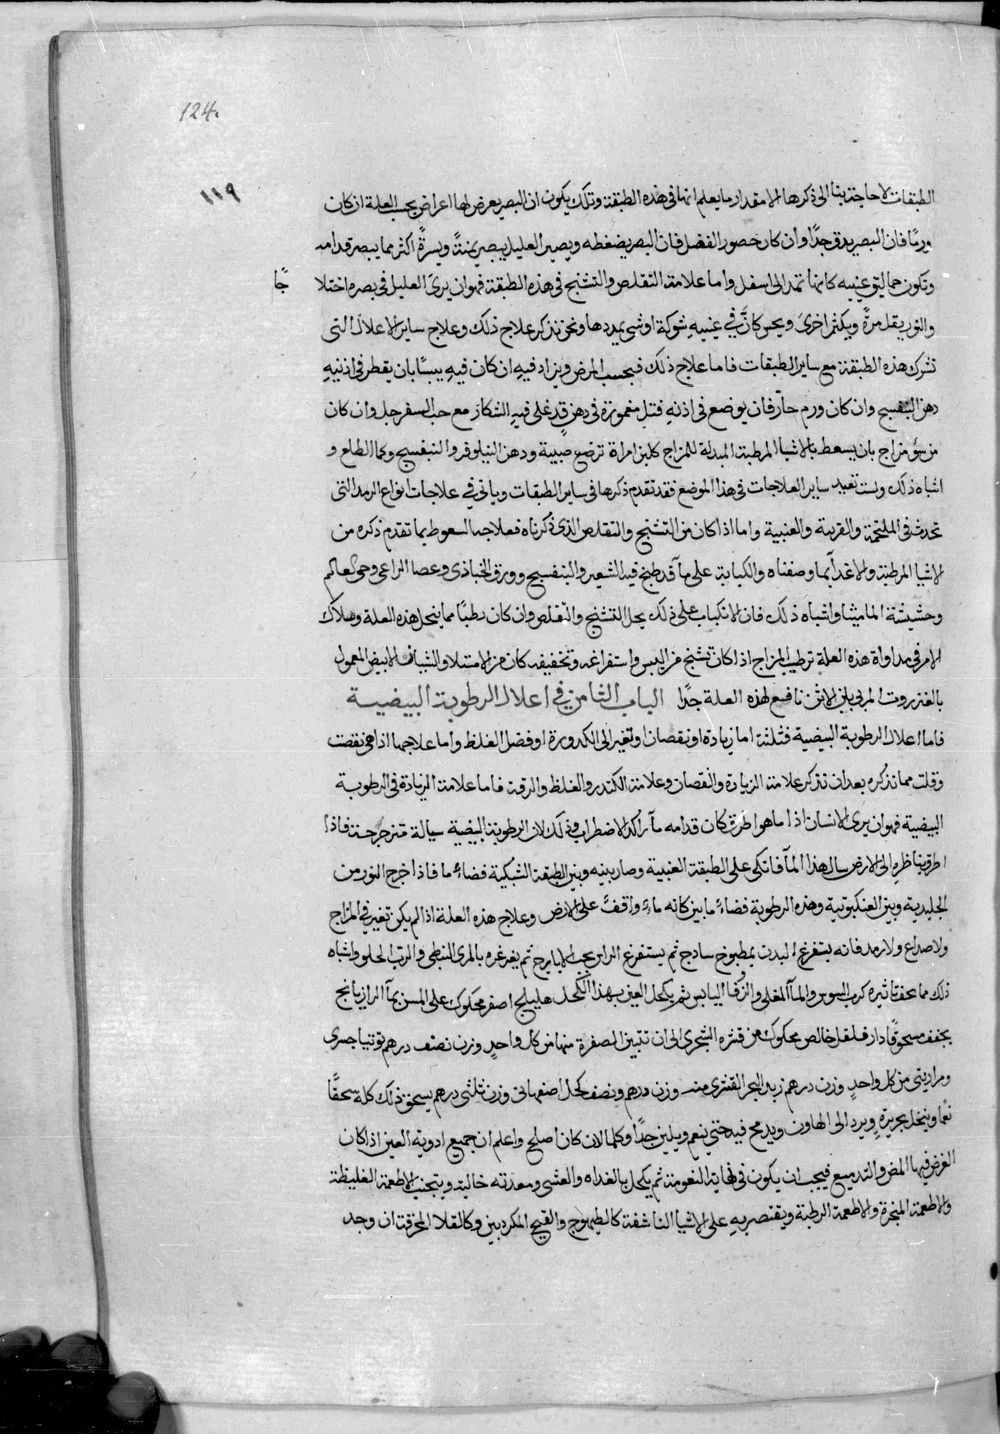 124.
١١٩
الطبقات لاحاجة بنا الى ذكرها الا مقدار ما يعلم انها فى هذه الطبقة وتلك يكون ان البصر يعرض لها اعراض بحسب العلة ان كان
ورمًا فان البصر يدق جدًا وان كان حصور الفضل فان البصر يضغطه ويصير العليل يبصر يمنةً ويسرةً اكثر مما يبصر قدامه
وتكون حماليق عينيه كانها تمد الى اسفل واما علامة التقلص والتشنج فى هذه الطبقة فهو ان يرى العليل فى بصره اختلا جًا
والنور يقل مرةً ويكثر اخرى ويحس كانَّ في عينيهِ شوكة اوشى يمددها ونحن نذكر علاج ذلك وعلاج ساير الاعلال التى
تشرك هذه الطبقة مع ساير الطبقات فاما علاج ذلك فبحسب المرض ويزاد فيهِ ان كان فيهِ يبسًا بان يقطر فى اذنيهِ
دهن البنفسج وان كان ورم حار فان يوضع فى اذنهِ فتل مغموزة فى دهن قد غلى فيهِ الشكاز مع حب السفرجل وان كان
من سؤ مزاج بان يسعط بالاشيا المرطبة المبدلة للمزاج كلبن امراة ترضع صبية ودهن النيلوفر والبنفسج وكما الطلع و
اشباه ذلك وليست تعيد ساير العلاجات فى هذا الموضع فقد تقدم ذكرها فى ساير الطبقات وياتي في علاجات انواع الرمد التى
تحدث فى الملتحمة والقرنية والعنبية واما اذا كان من التشنج والتقلص الذى ذكرناه فعلاجه السعوط بما تقدم ذكره من
الاشيا المرطبة والاغذآ بما وصفناه والكبابة على مآ قد طبخ فيه الشعير والبنفسج وورق الخباذى وعصا الراعى وحى العالم
وحشيشة الماميثا واشباه ذلك فان الانكباب على ذلك يحل التشنج والتقلص وان كان رطبًا مما ينحل هذه العلة وملاك
الامر في مداواة هذه العلة ترطيب المزاج اذا كان تشنج من اليبس واستفراغه وتخفيفه كان من الامتلا والشياف الابيض المعمول
بالعنزروت المربى بلبن الاتن نافع لهذه العلة جدًا الباب الثامن في اعلال الرطوبة البيضية
فاما اعلال الرطوبة البيضية فثلثة اما زيادة او نقصان او تغير الى الكدورة او فضل الغلظ واما علاجها اذا هى نقصت
وقلت مما نذكره بعد ان نذكر علامة الزيادة والنقصان وعلامة الكدر والغلظ والرقة فاما علامة الزيادة فى الرطوبة
البيضية فهو ان يرى الانسان اذا ما هو اطرق كان قدامه مآ راكد الاضطراب وذلك لان الرطوبة البيضية سيالة مترجرجة فاذا
اطرق بناظره الى الارض سال هذا المآ فاتكى على الطبقة العنبية وصار بينه وبين الطبقة الشبكية فضاءً ما فاذا خرج النور من
الجليدية وبين العنكبوتية وهذه الرطوبة فضاءً ما بين كانه ماءً واقفٌ على الارض وعلاج هذه العلة اذا لم يكن تغير فى المزاج
ولا صداع ولا رمد فانه يستفرغ البدن بمطبوخ سادج ثم يستفرغ الراس بحب الايارج ثم يغرغره بالمرى النبطى والرب الحلو واشباه
ذلك مما يخف تاثيره كرب السوس والمآ المغلى والزوفا اليابس ثم يكحل العين بهذا الكحل هليلج اصفر محكوك على المسن بمآ الرازيانج
يجفف مسحوقًا دار فلفل خالص محكوك من قشره الشجرى الى ان تتبين الصفرة منها من كل واحدٍ وزن نصف درهم توتيا بصرى
ومرارتى من كل واحدٍ وزن درهم زبد البحر القشرى منه وزن درهم ونصف كحل اصفهانى وزن ثلثى درهم يسحق ذلك كله سحقًا
نعما وينخل بحريرةٍ ويرد الى الهاون ويدمج فيه حتي ينعم ويلين جدًا وكلما لان كان اصلح واعلم ان جميع ادوية العين اذا كان
الغرض فيها المضر والتدميع فيجب ان يكون فى نهاية النعومة ثم يكحل بالغداه والعشى ومعدته خالية ويتجنب الاطعمة الغليظة
والاطعمة المبخرة والاطعمة الرطبة ويقتصر بهِ على الاشيا الناشفة كالطيهوج والقبج المكردبين وكالقلايا المحرقة ان وجد